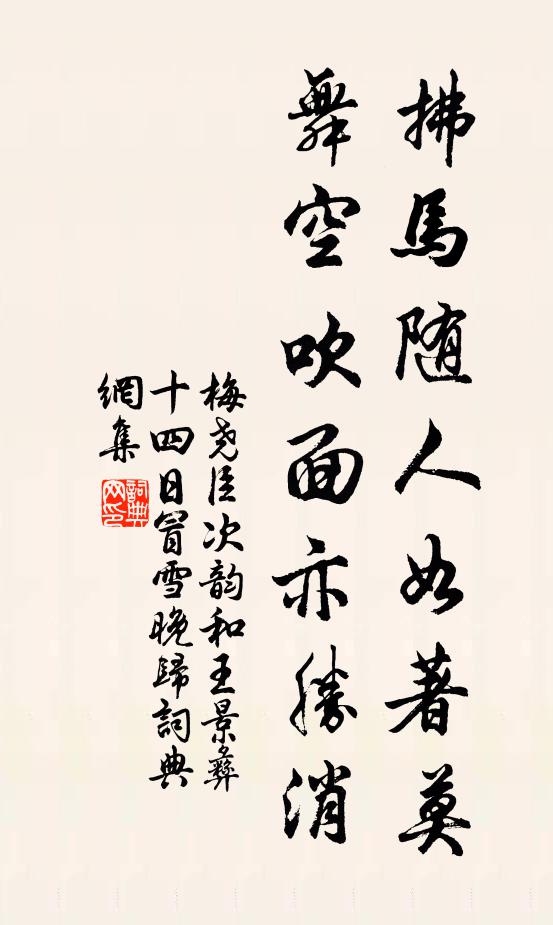 拂馬随人如著莫
舞空吹面亦勝消
梅堯臣次韵和王景彝
十四日冒雪晚歸詞典
網集
詞典
网印